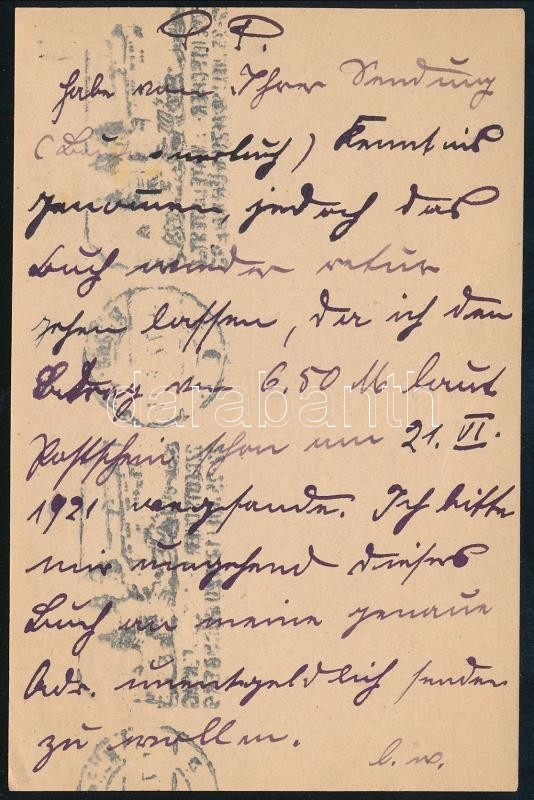 P. P.
habe von Ihrer Sendung
( Kenntnis
genommen, jedoch das
Buch wieder retur
gehen lassen, da ich den
Betrag von 6.50 M. laut
Postschein schon am 21. VI.
1921 wegsande. Ich bitte
mir umgehend dieses
Buch an meine genaue
Adr. unentgeldlich senden
zu wollen.
b. w.
darabanth